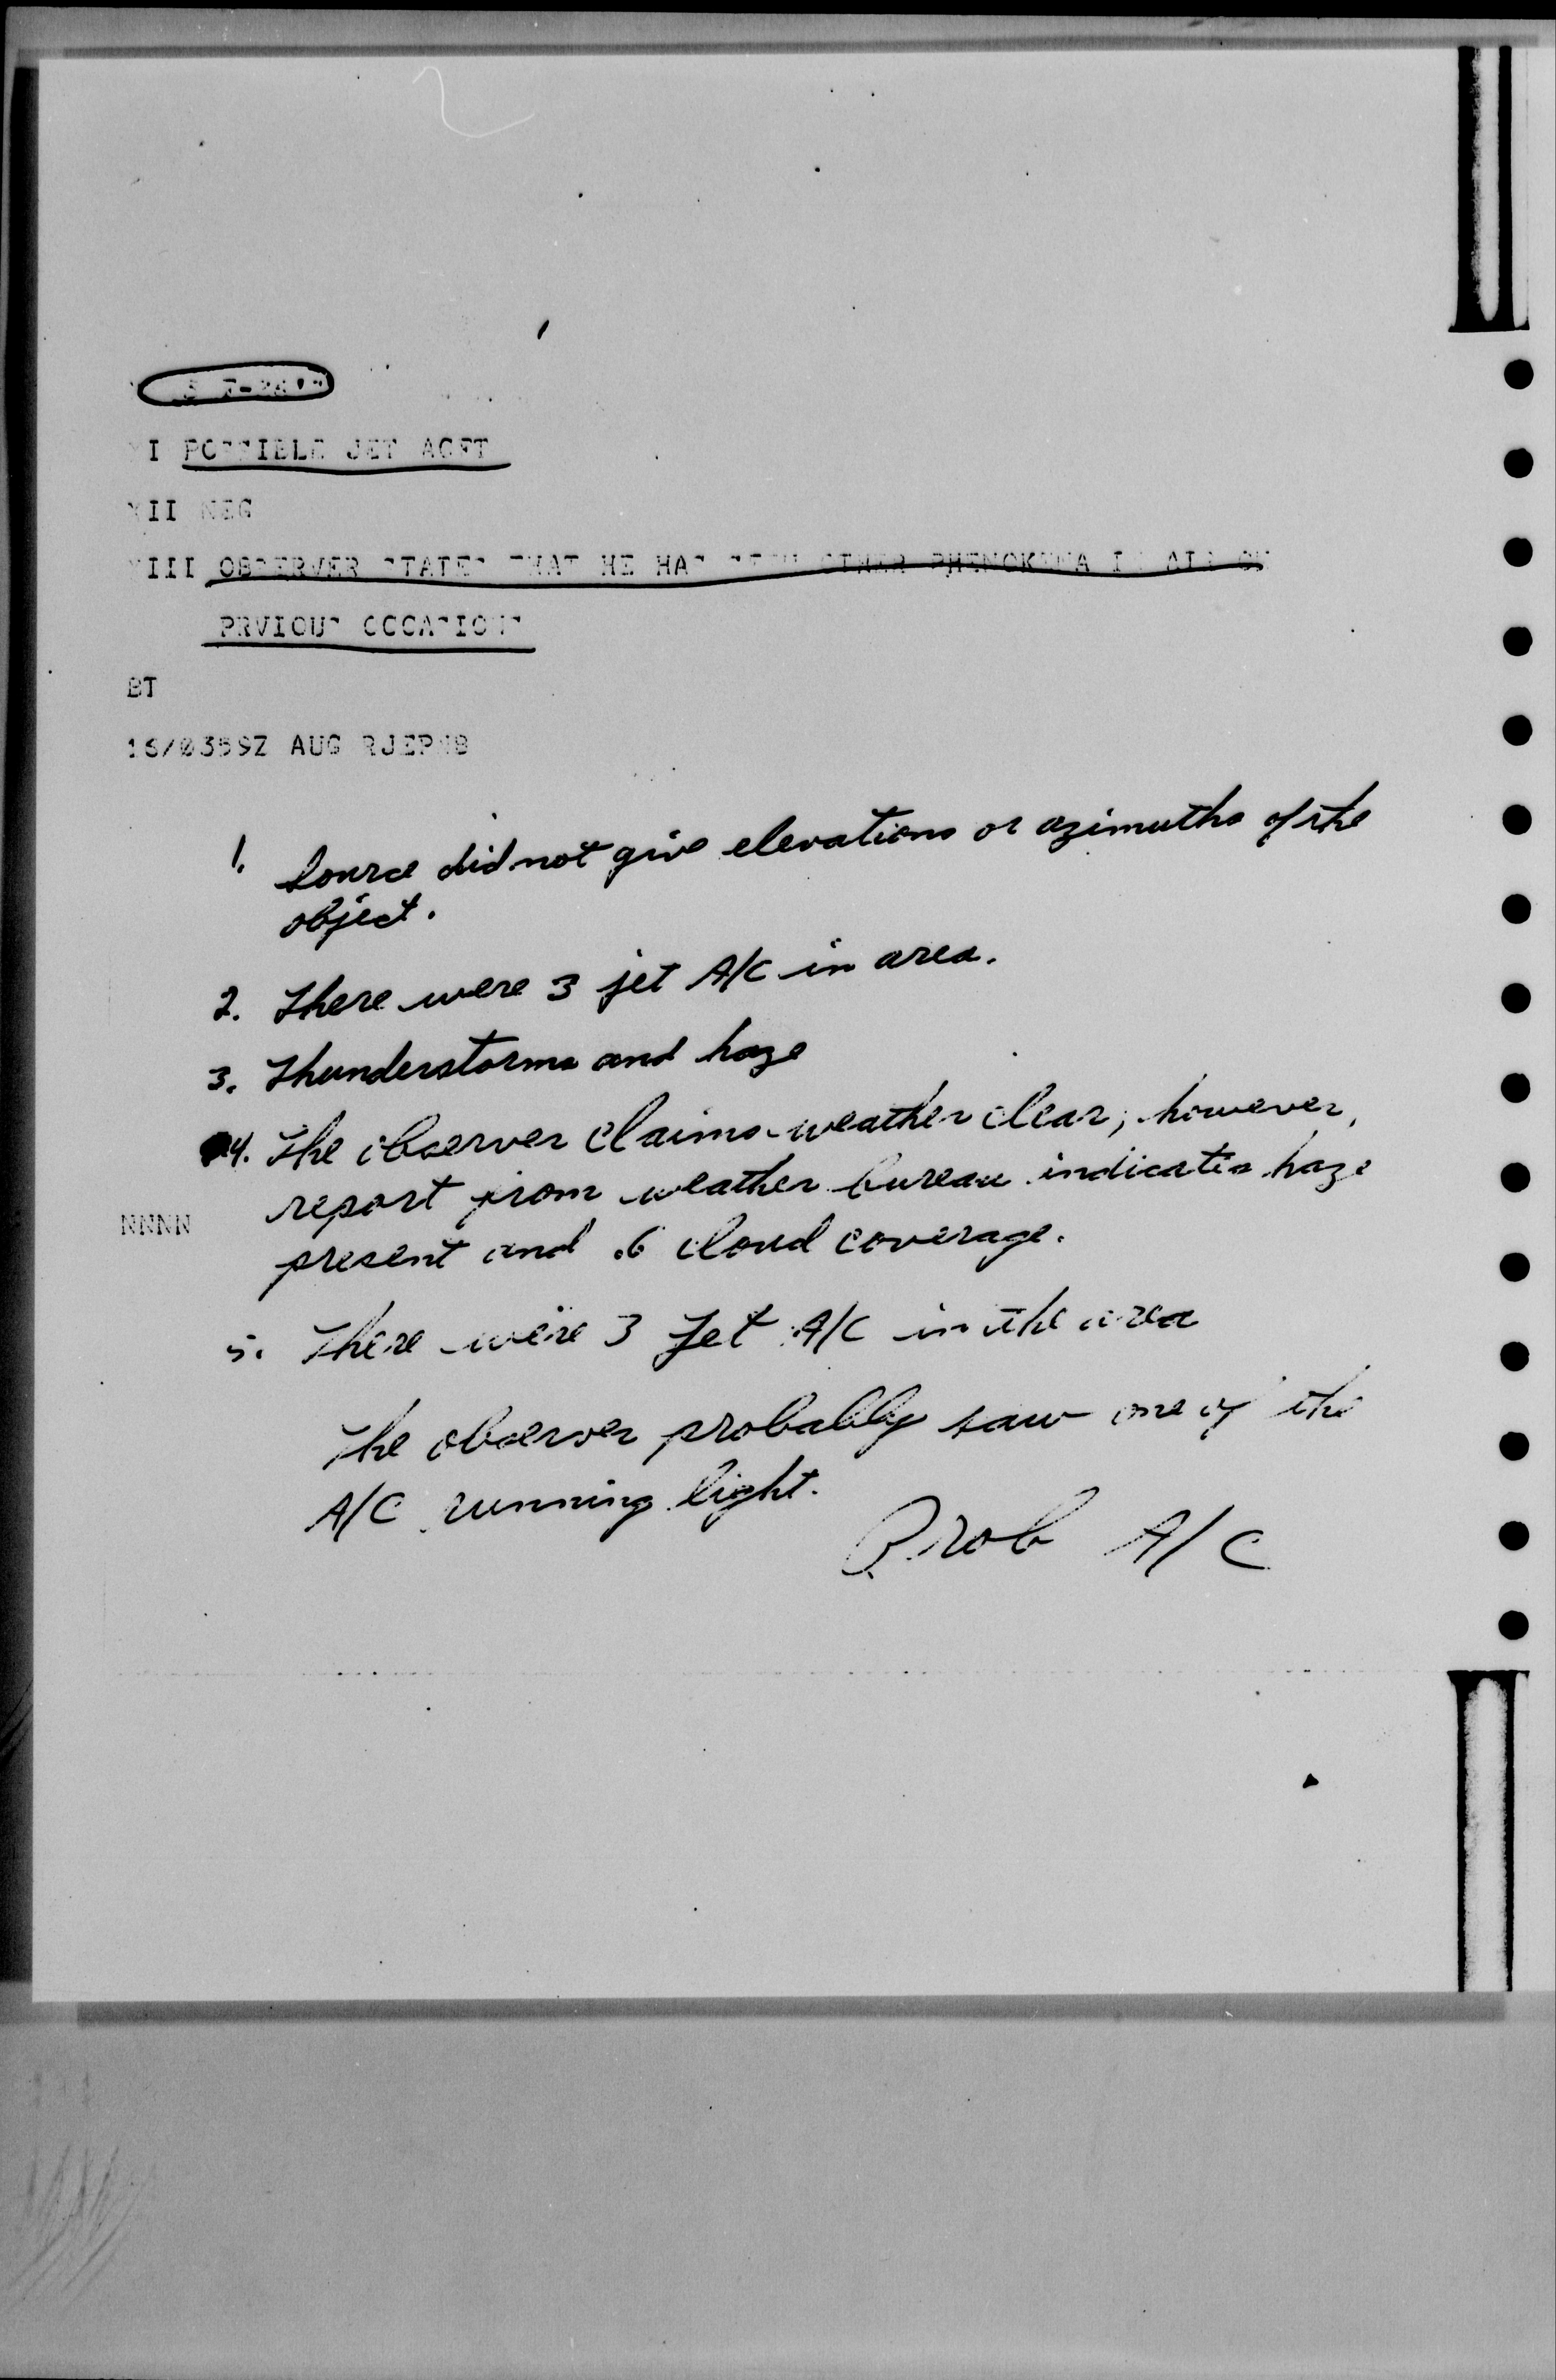 3 F-86'S
XI POSSIBLE JET ACFT
XII NEG
XIII OBSERVER STATES THAT HE HAS SEEN OTHER PHENOKENA IN AIR ON
PRVIOUS OCCASIONS
BT
16/0359Z AUG RJEPNB
1. Source did not give elevations or azimuths of the
object.
2. There were 3 jet A/C in area.
3. Thunderstorms and haze
4. The observer claims weather clear; however,
report from weather bureau indicates haze
NNNN
present and .6 cloud coverage.
5. There were 3 Jet A/C in the area
The observer probably saw one of the
A/C running light.
Prob A/C